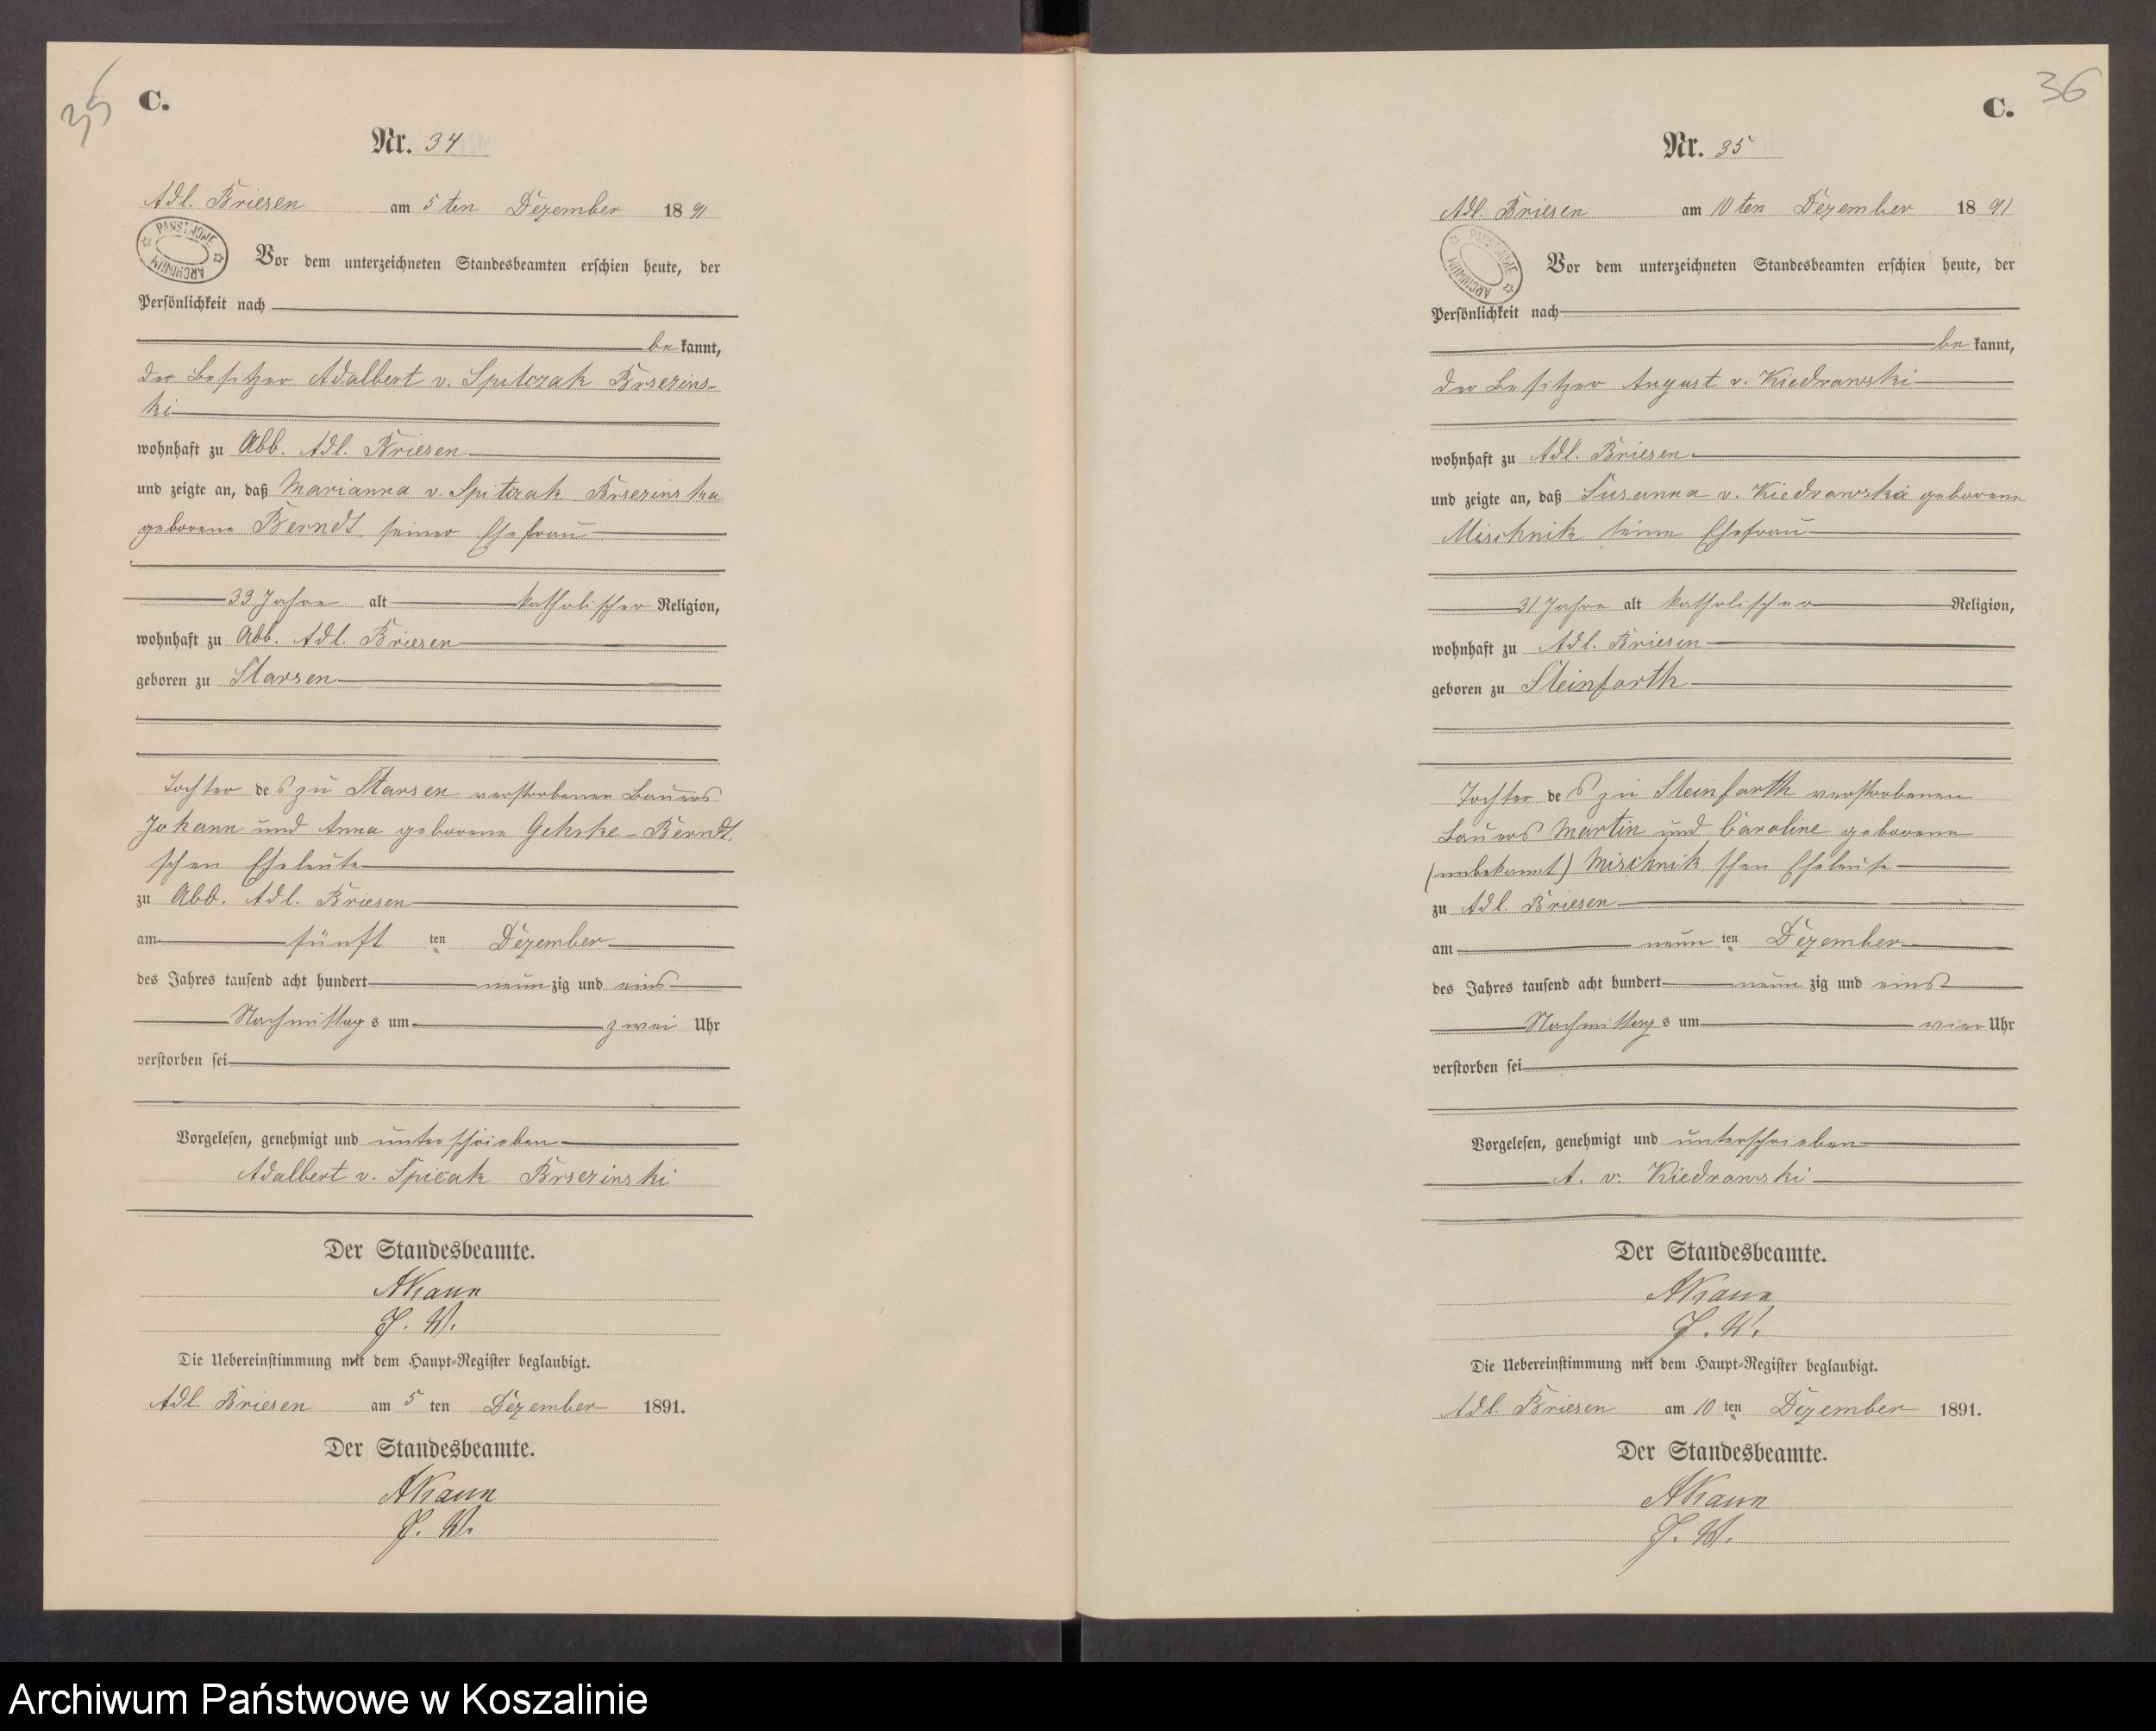 35
C.
Nr. 34
Adl. Briesen am 5 ten Dezember 1891
PAŃSTWOWE ARCHIWUM
Vor dem unterzeichneten Standesbeamten erschien heute, der
Persönlichkeit nach
be kannt,
der Besitzer Adalbert v. Spitczak Brsezins-
ki
wohnhaft zu Abb. Adl. Briesen
und zeigte an, daß Marianna v. Spitczak Brsezinska
geborene Berndt, seiner Ehefrau
33 Jahre alt katholischer Religion,
wohnhaft zu Abb. Adl. Briesen
geboren zu Starsen
Tochter des zu Starsen verstorbenen Bauers
Johann und Anna geborene Gehrke-Berndt
schen Eheleute
zu Abb. Adl. Briesen
am fünft ten Dezember
des Jahres tausend acht hundert neunzig und eins
Nachmittags um zwei Uhr
verstorben sei
Vorgelesen, genehmigt und unterschrieben
Adalbert v. Spicak Brsezinski
Der Standesbeamte.
AKaun
J. V.
Die Uebereinstimmung mit dem Haupt-Register beglaubigt.
Adl. Briesen am 5 ten Dezember 1891.
Der Standesbeamte.
AKaun
J. V.
36
C.
Nr. 35
Adl. Briesen am 10 ten Dezember 1891
PAŃSTWOWE ARCHIWUM
Vor dem unterzeichneten Standesbeamten erschien heute, der
Persönlichkeit nach
be kannt,
der Besitzer August v. Kiedrowski
wohnhaft zu Adl. Briesen
und zeigte an, daß Susanna v. Kiedrowska geborene
Mischnik seine Ehefrau
31 Jahre alt katholischer Religion,
wohnhaft zu Adl. Briesen
geboren zu Steinforth
Tochter des zu Steinforth verstorbenen
Bauers Martin und Caroline geborene
(unbekannt) Mischnik schen Eheleute
zu Adl. Briesen
am neun ten Dezember
des Jahres tausend acht hundert neun zig und eins
Nachmittags um vier Uhr
verstorben sei
Vorgelesen, genehmigt und unterschrieben
A. v. Kiedrowski
Der Standesbeamte.
AKaun
J. V.
Die Uebereinstimmung mit dem Haupt-Register beglaubigt.
Adl. Briesen am 10 ten Dezember 1891.
Der Standesbeamte.
AKaun
J. V.
Archiwum Państwowe w Koszalinie